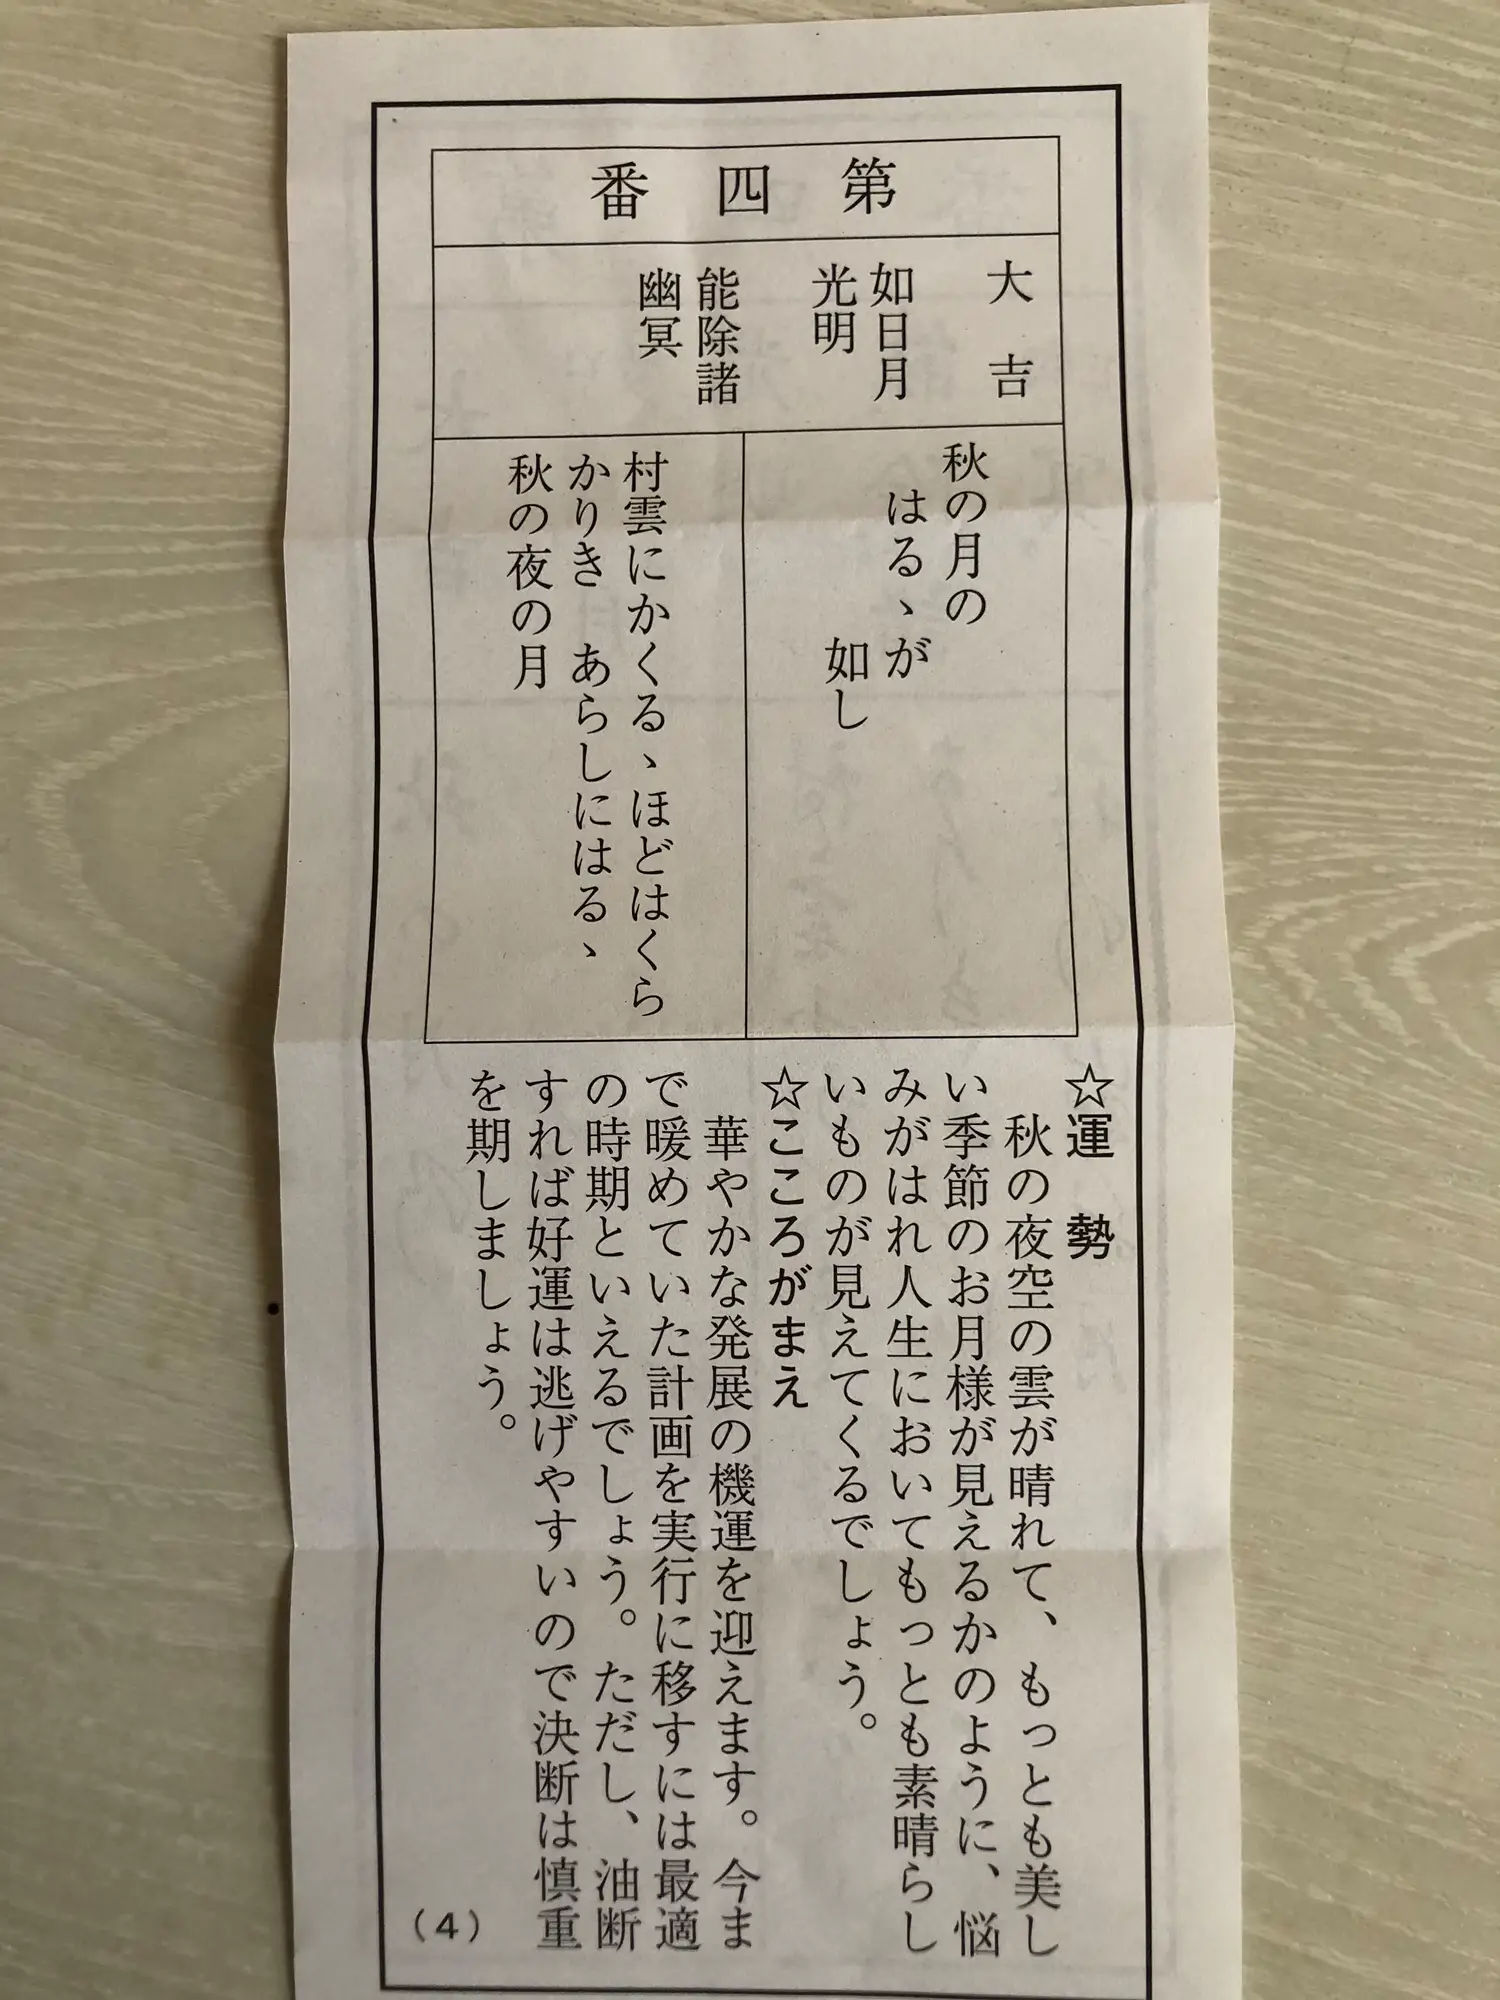 第四番
大吉
如日月
光明
能除諸
幽冥
秋の月の
はるヽが
如し
村雲にかくるヽほどはくら
かりき　あらしにはるヽ
秋の夜の月
☆運　勢
秋の夜空の雲が晴れて、もっとも美し
い季節のお月様が見えるかのように、悩
みがはれ人生においてもっとも素晴らし
いものが見えてくるでしょう。
☆こころがまえ
華やかな発展の機運を迎えます。今ま
で暖めていた計画を実行に移すには最適
の時期といえるでしょう。ただし、油断
すれば好運は逃げやすいので決断は慎重
を期しましょう。
（4）